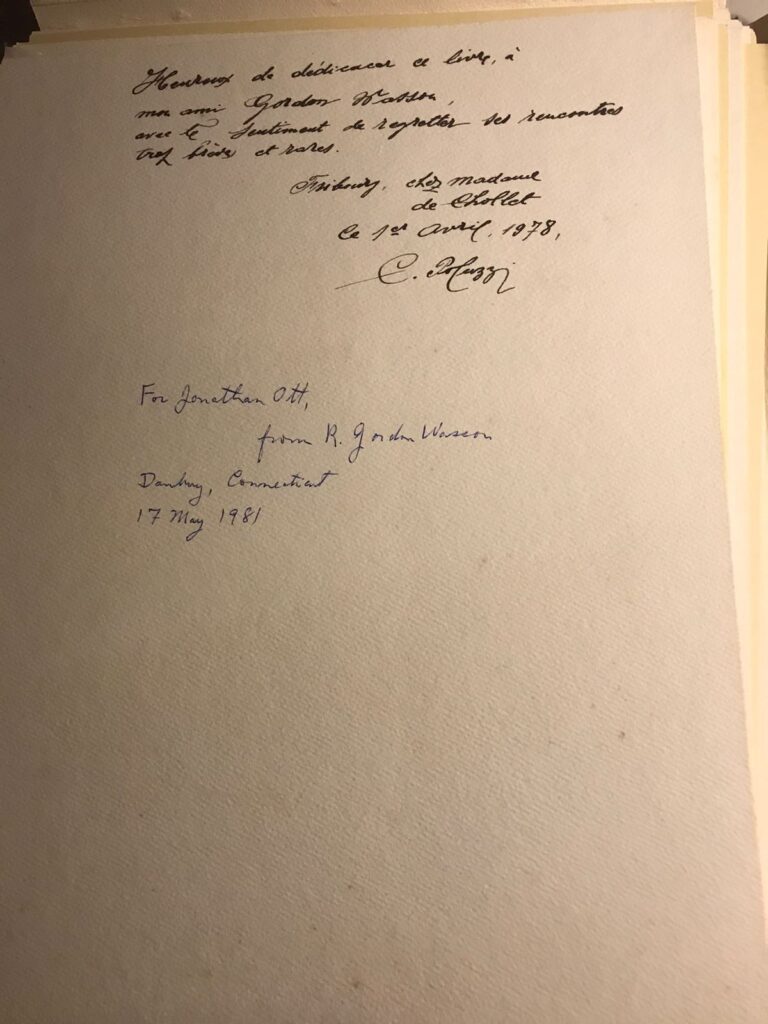 Heureux de dédicacer ce livre, à
mon ami Gordon Wasson,
avec le sentiment de regretter ses rencontres
tres brèves et rares.
Fribourg, chez madame
de Chollet
le 1er avril, 1978,
C. Poluzzi
For Jonathan Ott,
from R. Gordon Wasson
Danbury, Connecticut
17 May 1981